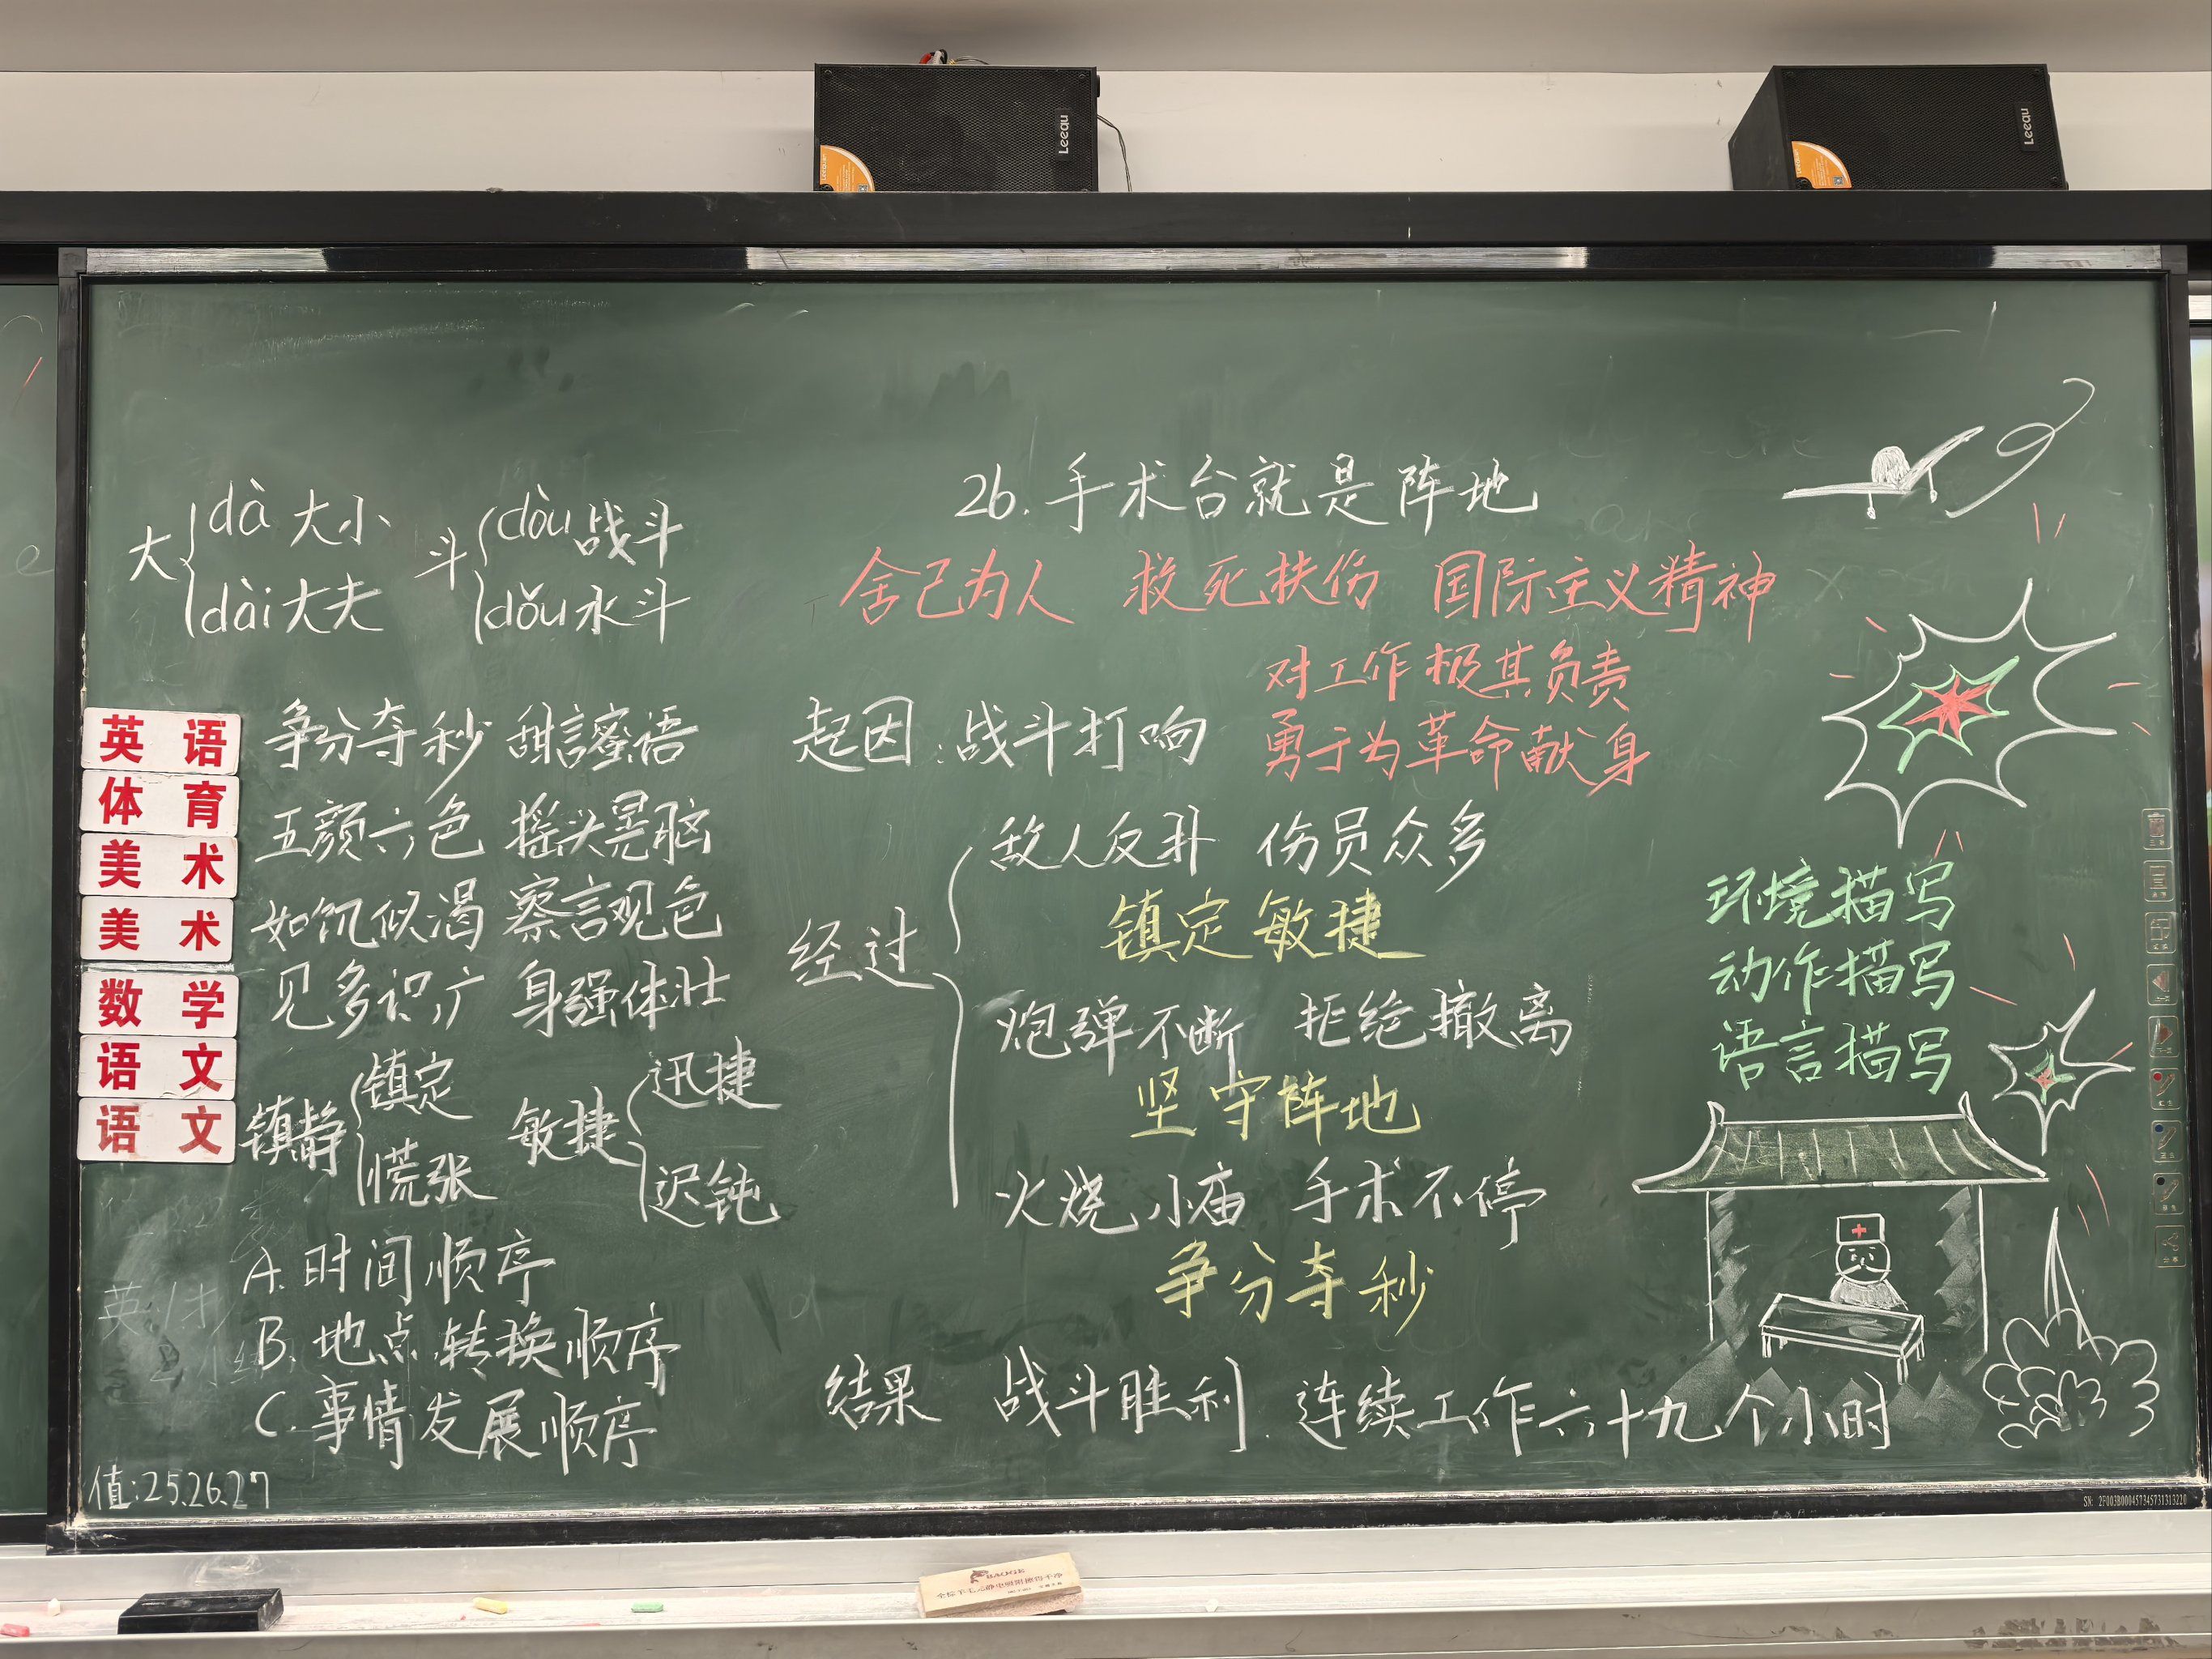 Leeau
Leeau
26.手术台就是阵地
舍己为人 救死扶伤 国际主义精神
对工作极其负责
勇于为革命献身
大 dà 大小
dài 大夫
斗 dòu 战斗
dǒu 水斗
英语
体育
美术
美术
数学
语文
语文
争分夺秒 甜言蜜语
五颜六色 摇头晃脑
如饥似渴 察言观色
见多识广 身强体壮
镇静 镇定
慌张
敏捷 迅捷
迟钝
A.时间顺序
B.地点转换顺序
C.事情发展顺序
值:25.26.27
起因:战斗打响
经过
敌人反扑 伤员众多
镇定敏捷
炮弹不断 拒绝撤离
坚守阵地
火烧小庙 手术不停
争分夺秒
结果 战斗胜利 连续工作六十九个小时
环境描写
动作描写
语言描写
BAOKE